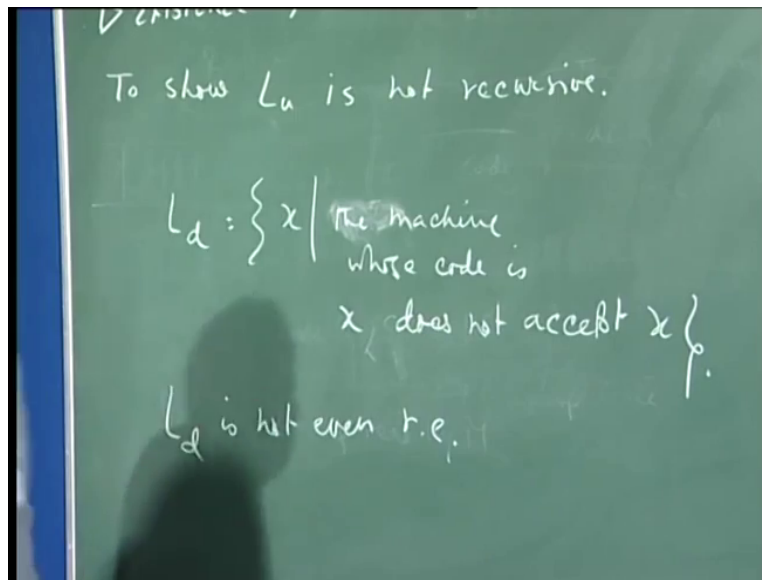 To show Lu is not recursive.
Ld : { x | the machine
whose code is
x, does not accept x }.
Ld is not even r.e.